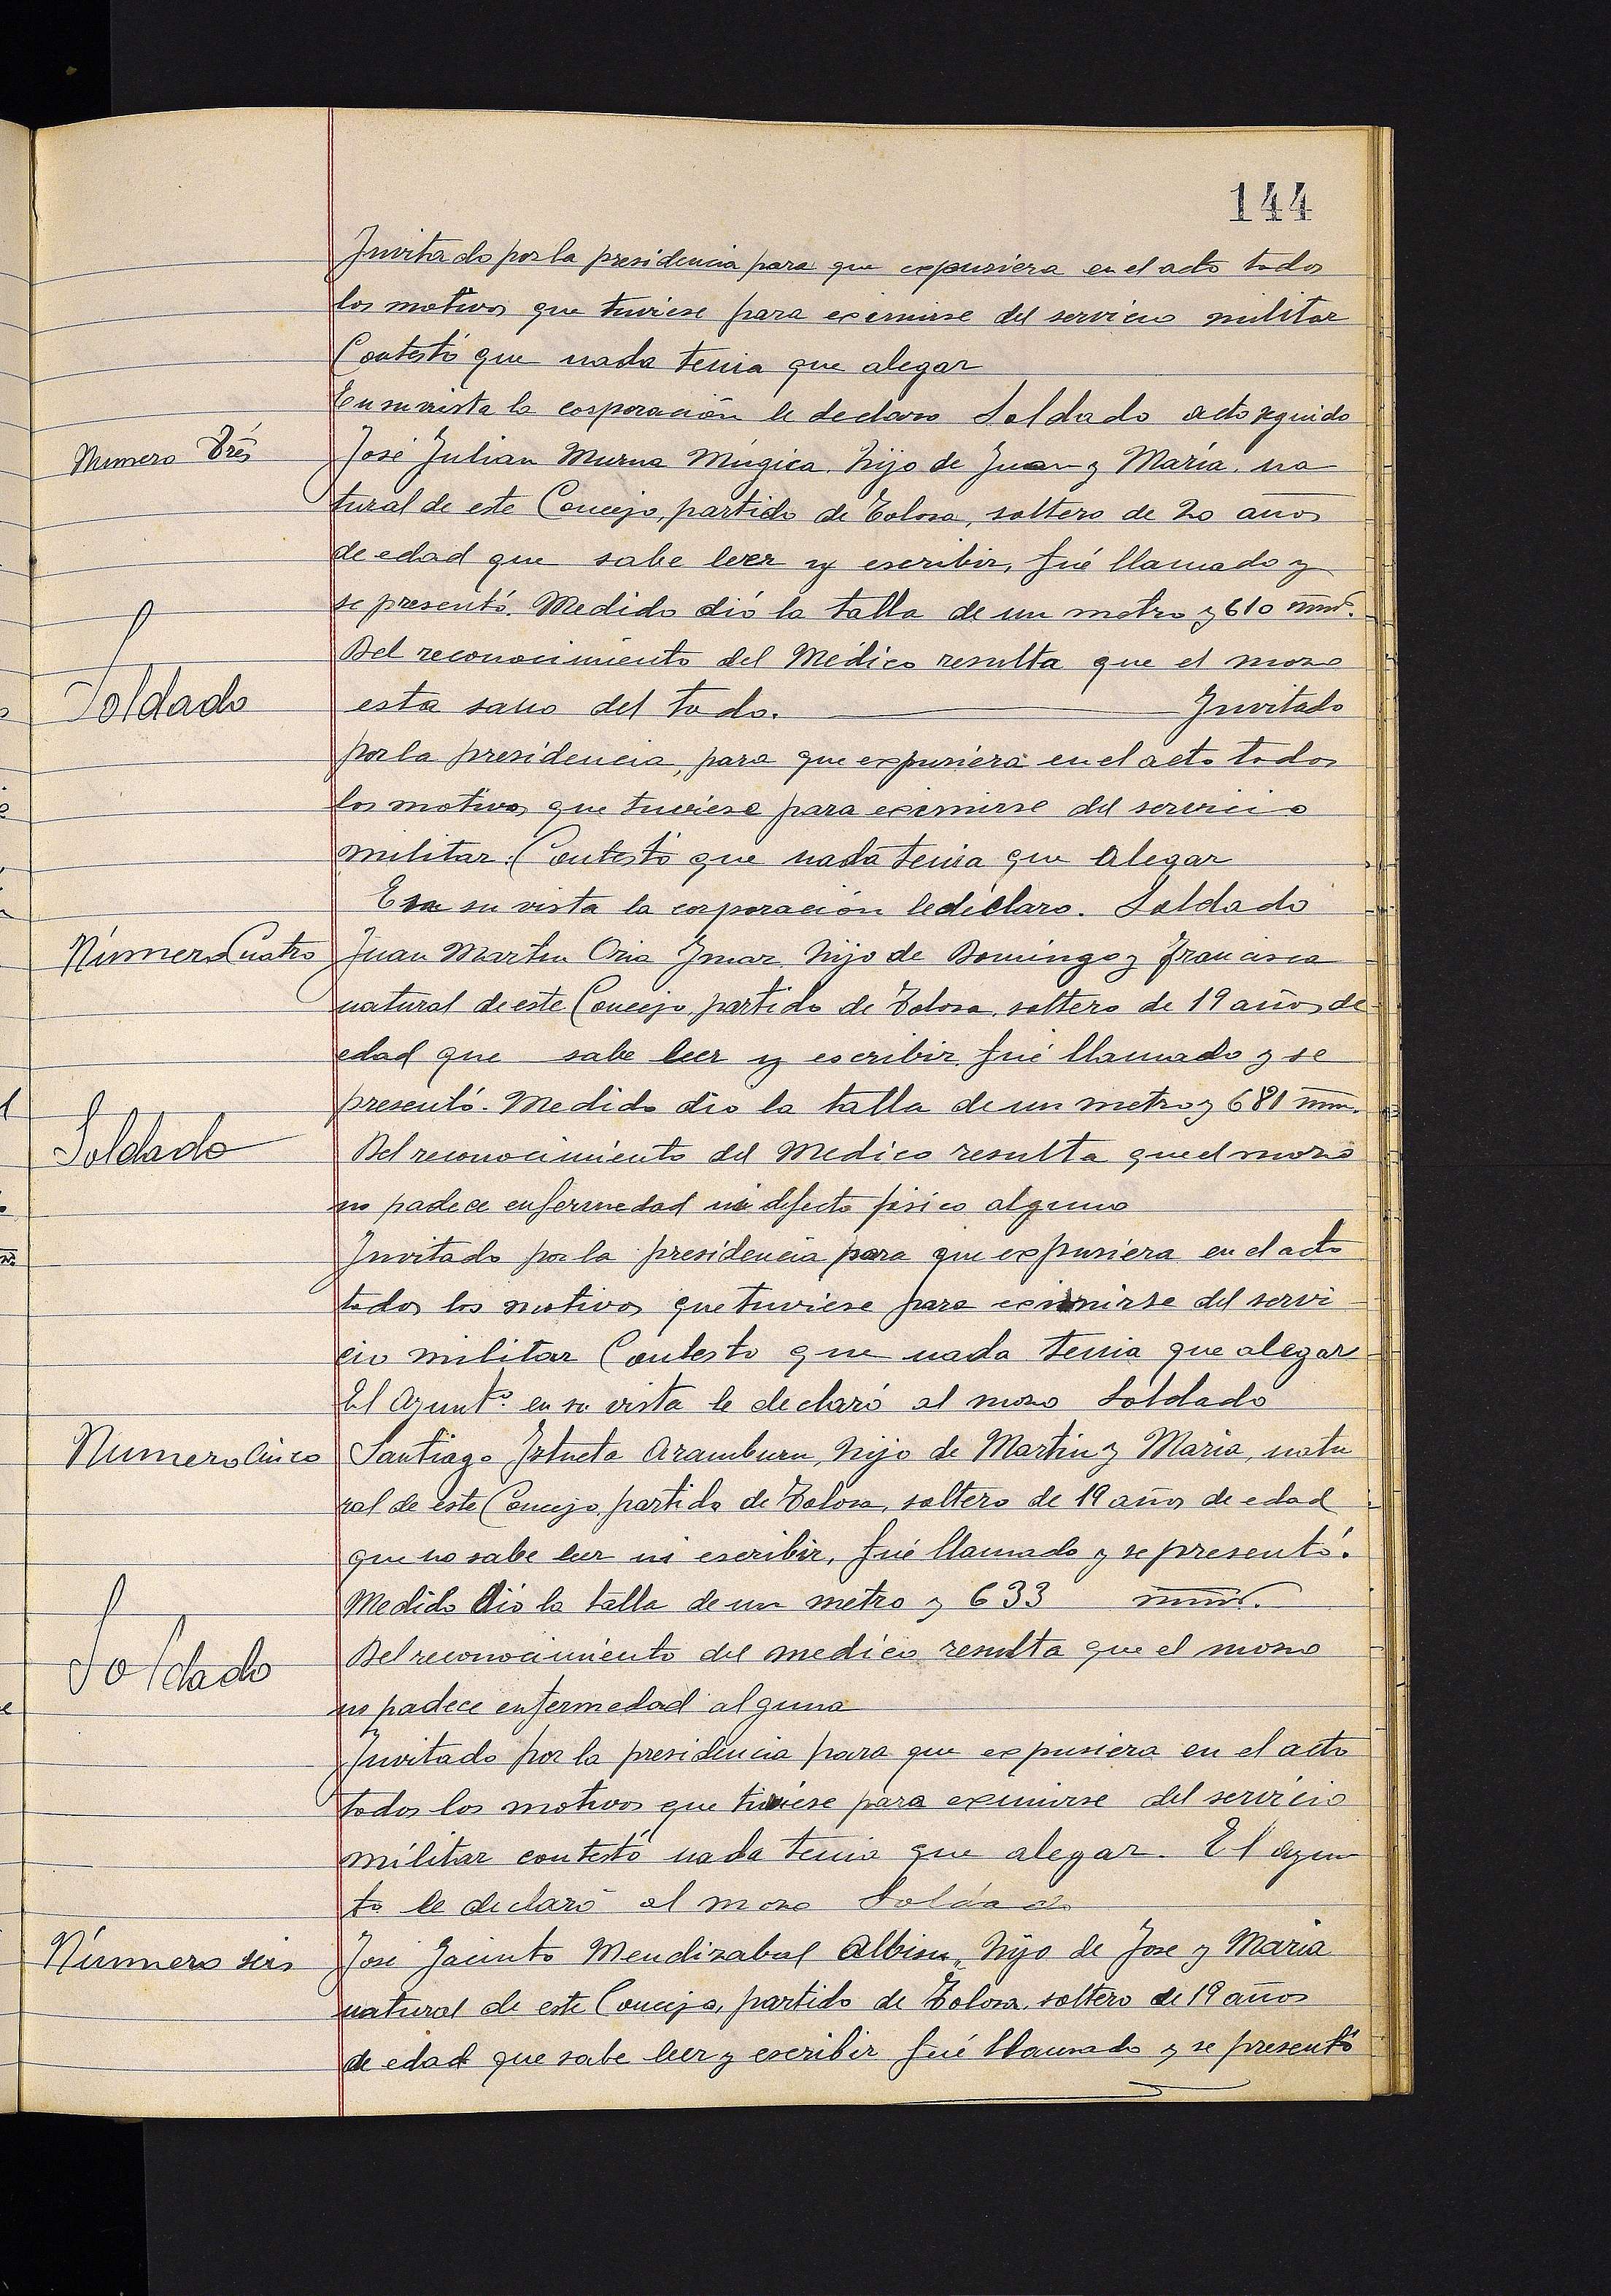 144
Invitado por la presidencia para que expusiera en el acto todos
los motivos que tuviese para eximirse del servicio militar
Contestó que nada tenia que alegar
En su vista la corporación le declaro Soldado acto seguido
Numero Trés
José Julian Murua Múgica. hijo de Juan y María. na
tural de este Concejo, partido de Tolosa, soltero de 20 años
de edad que sabe leer y escribir, fué llamado y
se presentó. Medido dió la talla de un metro y 610 mm.
Del reconocimiento del Médico resulta que el mozo
Soldado
esta sano del todo. Invitado
por la presidencia, para que expusiera en el acto todos
los motivos que tuviese para eximirse del servicio
militar. Contestó que nada tenia que alegar
En su vista la corporación le declaro. Soldado
Número Cuatro
Juan Martin Oria Imaz, hijo de Domingo y Francisca
natural de este Concejo, partido de Tolosa, soltero de 19 años de
edad que sabe leer y escribir, fué llamado y se
presentó. Medido dio la talla de un metro y 681 mm.
Soldado
Del reconocimiento del Medico resulta que el mozo
no padece enfermedad ni defecto fisico alguno
Invitado por la presidencia para que expusiera en el acto
todos los motivos que tuviese para eximirse del servi
cio militar Contesto que nada tenia que alegar
El Ayunto. en su vista le declaró al mozo Soldado
Numero Cinco
Santiago Iztueta Aramburu, hijo de Martin y Maria, natu
ral de este Concejo, partido de Tolosa, soltero de 19 años de edad
que no sabe leer ni escribir, fué llamado y se presentó.
Medido dio la talla de un metro y 633 mm.
Soldado
Del reconocimiento del medico resulta que el mozo
no padece enfermedad alguna
Invitado por la presidencia para que expusiera en el acto
todos los motivos que tuviese para eximirse del servicio
militar contestó nada tenia que alegar. El ayun
to le declaró al mozo Soldado
Número seis
José Jacinto Mendizabal Albisu, hijo de Jose y Maria
natural de este Concejo, partido de Tolosa, soltero de 19 años
de edad que sabe leer y escribir fué llamado y se presentó